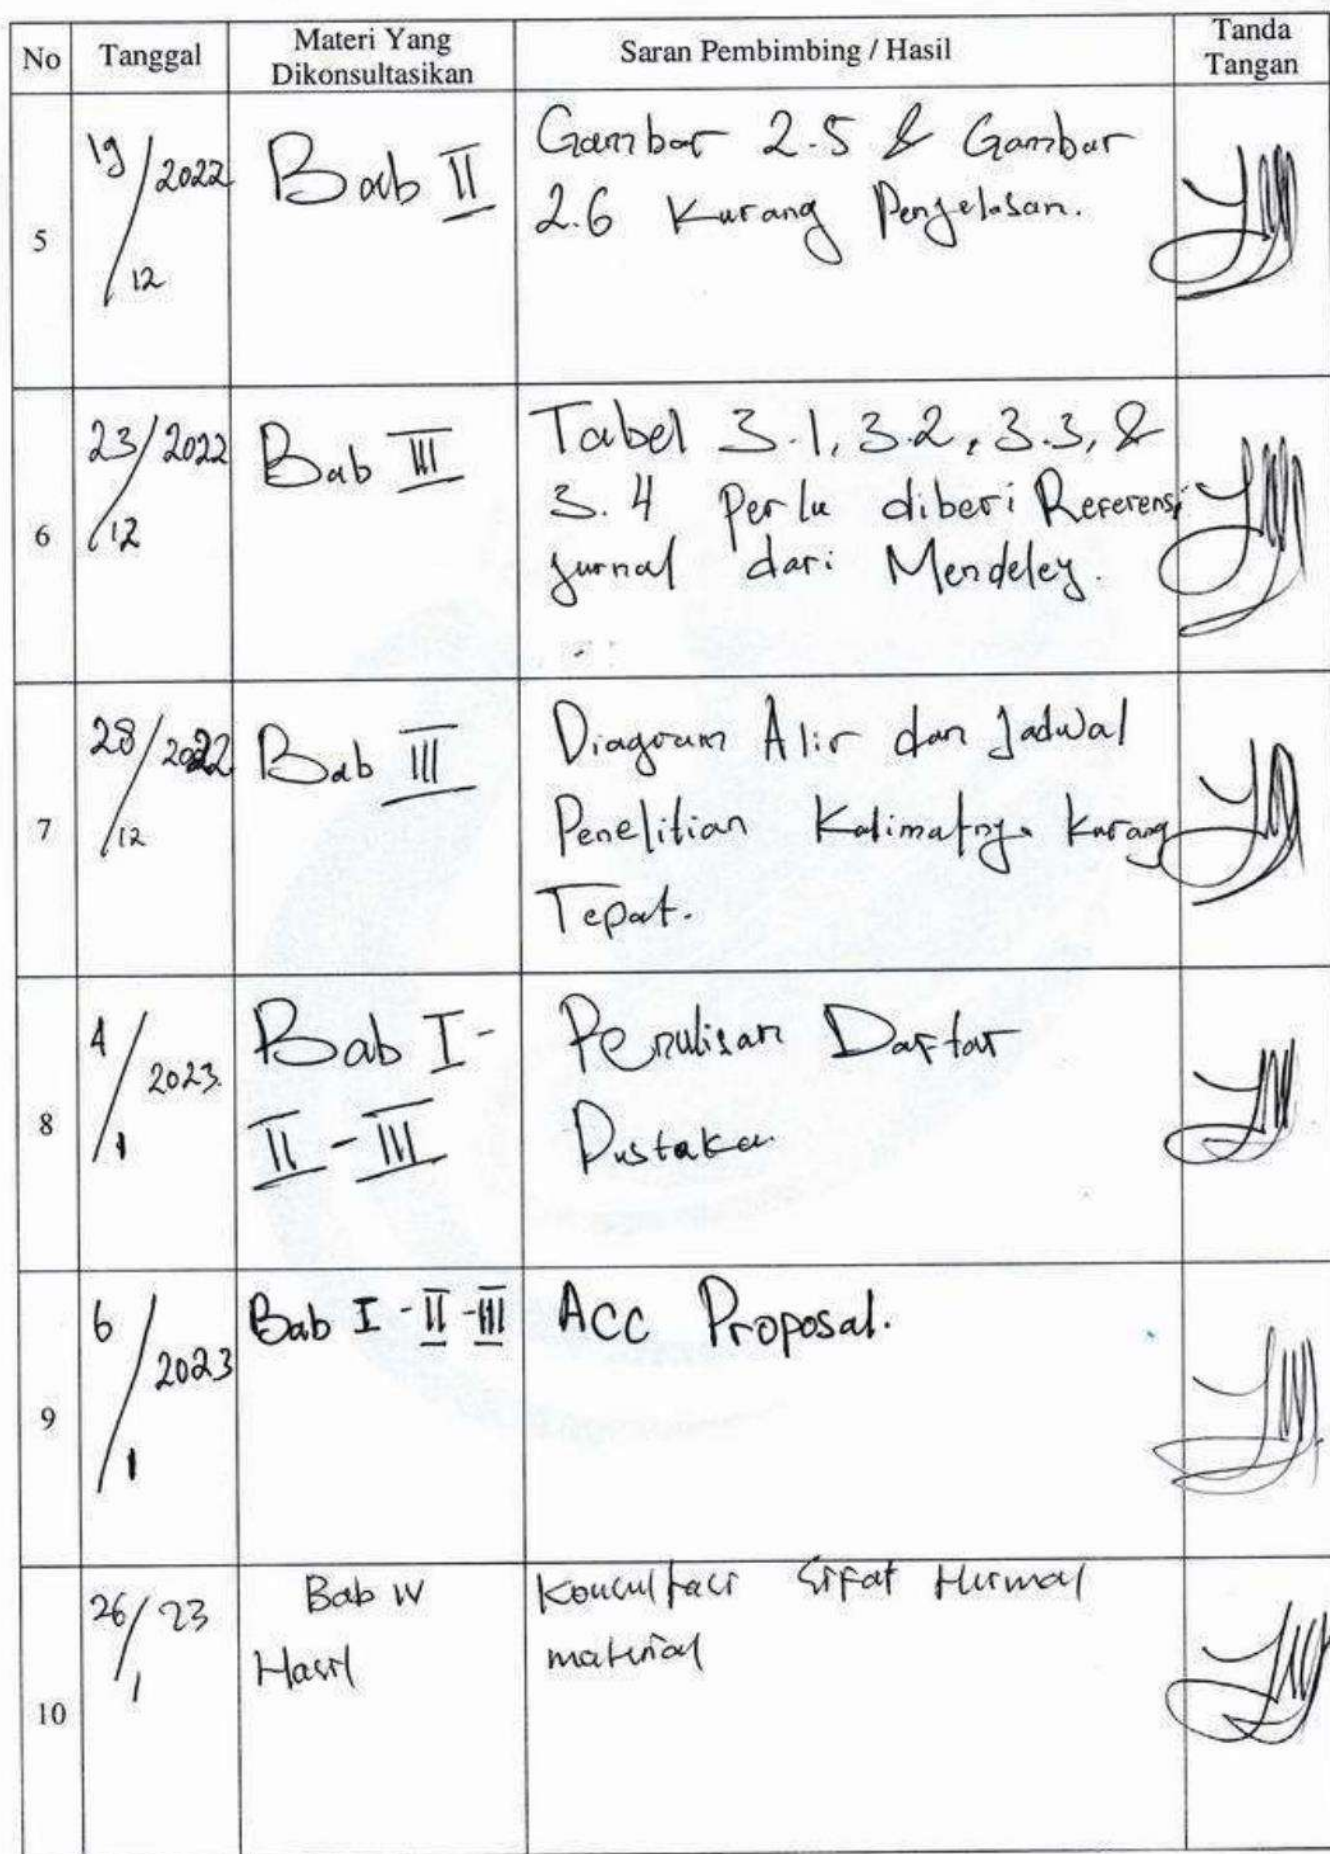 No Tanggal Materi Yang Dikonsultasikan Saran Pembimbing / Hasil Tanda Tangan
5 19/12 2022 Bab II Gambar 2.5 & Gambar
2.6 Kurang Penjelasan.
6 23/12 2022 Bab III Tabel 3.1, 3.2, 3.3, &
3.4 Perlu diberi Referensi
jurnal dari Mendeley.
7 28/12 2022 Bab III Diagram Alir dan Jadwal
Penelitian Kalimatnya Kurang
Tepat.
8 4/1 2023. Bab I - Penulisan Daftar
II - III Pustaka
9 6/1 2023 Bab I - II - III ACC Proposal.
10 26/1 23 Bab IV Konsultasi Sifat thermal
Hasil material